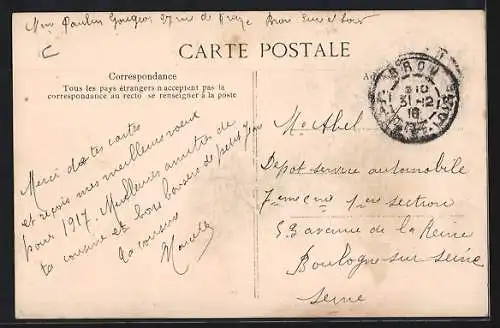 Mme Paulin Gougeon 27 rue de Brou Eure et Loir
CARTE POSTALE
Correspondance
Tous les pays étrangers n'acceptent pas la
correspondance au recto se renseigner à la poste
BROU
31-12
16
Mr Abel
Depot service automobile
7eme 1ere section
53 avenue de la Reine
Boulogne sur seine
Seine
Merci de tes cartes
et reçois mes meilleurs voeux
pour 1917. Meilleures amitiés de
ta cousine et bons baisers de petit Jean
ta cousine
Marcelle